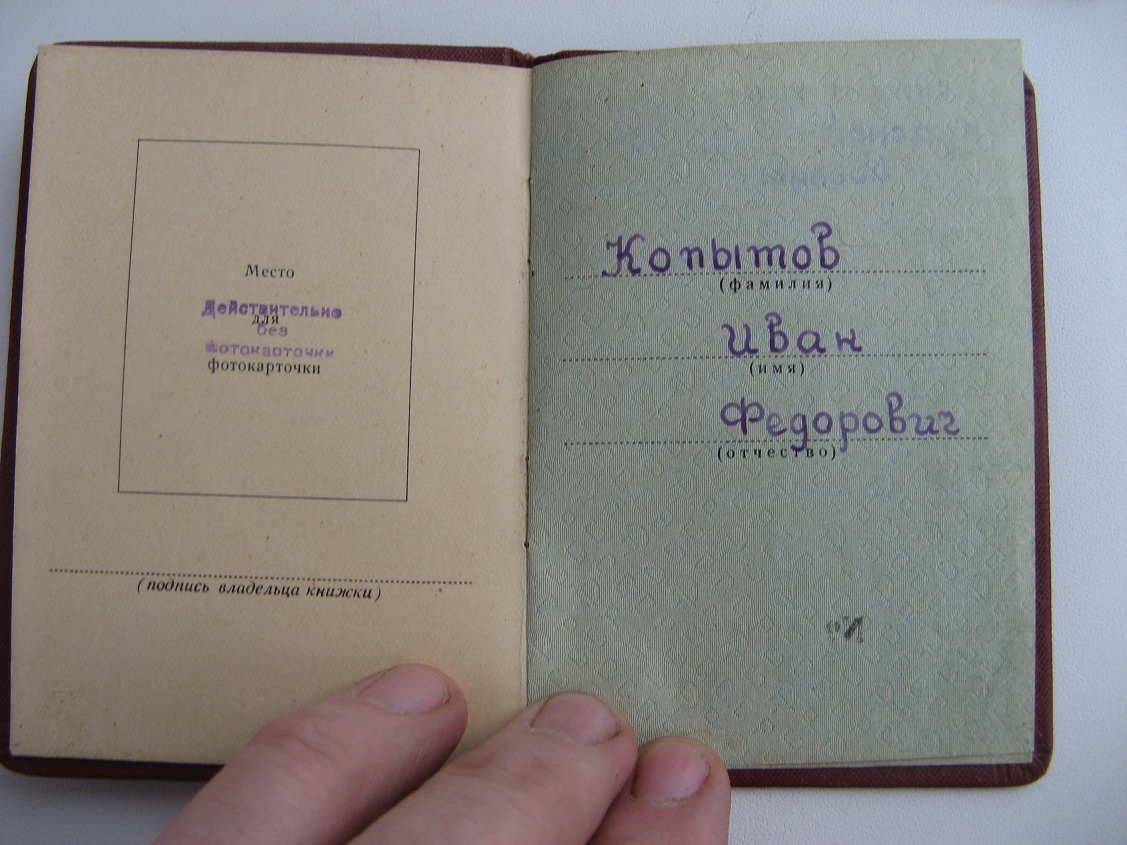 Место
Действительно
для
без
фотокарточки
фотокарточки
(подпись владельца книжки)
Копытов
(фамилия)
Иван
(имя)
Федорович
(отчество)
№